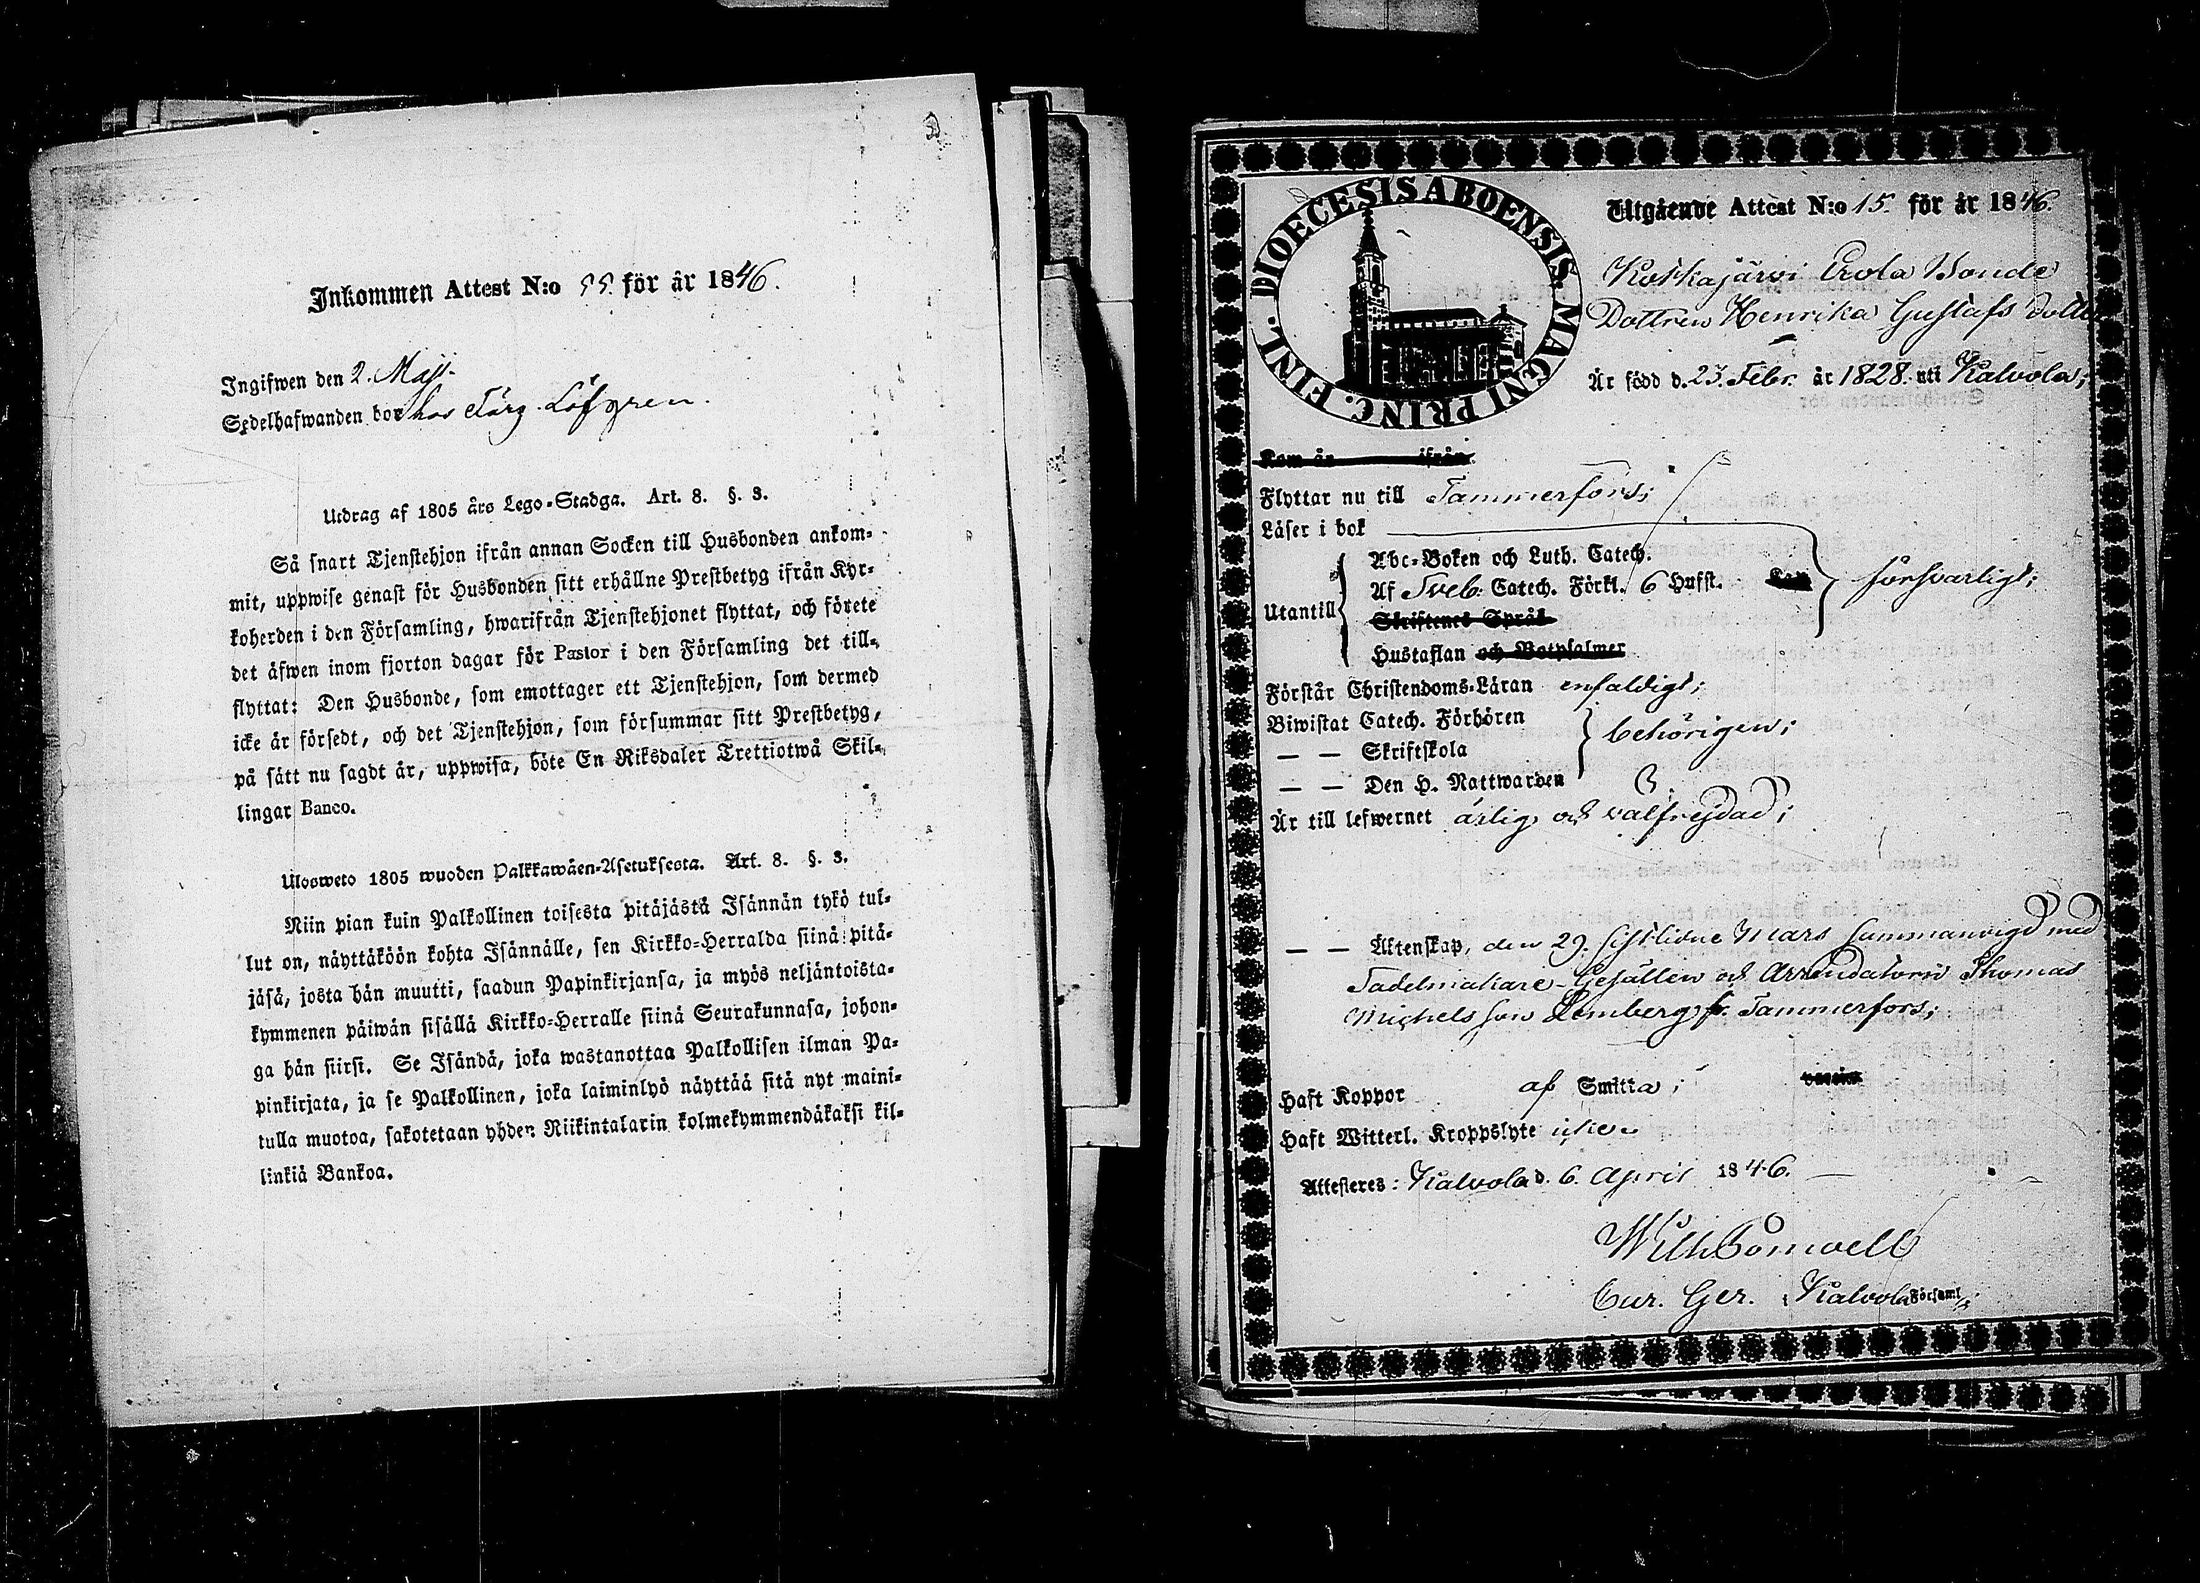 Inkommen Attest N:o 55. för år 1846.
Ingifwen den 2. Maji.
Sedelhafwanden bor hos Färg. Löfgren.
Utdrag af 1805 års Lego-Stadga. Art. 8. §. 3.
Så snart Tjenstehjon ifrån annan Socken till Husbonden ankom-
mit, uppwise genast för Husbonden sitt erhållne Prestbetyg ifrån Kyr-
koherden i den Församling, hwarifrån Tjenstehjonet flyttat, och förete
det äfwen inom fjorton dagar för Pastor i den Församling det till-
flyttat: Den Husbonde, som emottager ett Tjenstehjon, som dermed
icke är försedt, och det Tjenstehjon, som försummar sitt Prestbetyg,
på sätt nu sagdt är, uppwisa, böte En Riksdaler Trettiotwå Skil-
lingar Banco.
Ulosweto 1805 wuoden Palkkawäen-Asetuksesta. Art. 8. §. 3.
Niin pian kuin Palkollinen toisesta pitäjästä Isännän tykö tul-
lut on, näyttäköön kohta Isännälle, sen Kirkko-Herralda siinä pitä-
jäsä, josta hän muutti, saadun Papinkirjansa, ja myös neljäntoista-
kymmenen päiwän sisällä Kirkko-Herralle siinä Seurakunnasa, johon-
ga hän siirsi. Se Isändä, joka wastanottaa Palkollisen ilman Pa-
pinkirjata, ja se Palkollinen, joka laiminlyö näyttää sitä nyt maini-
tulla muotoa, sakotetaan yhden Riikintalarin kolmekymmendäkaksi kil-
linkiä Bankoa.
DIOECESIS ABOENSIS. MAGNI PRINC. FINL.
Utgående Attest N:o 15. för år 1846.
Kotkajärvi Erola Bonde
Dottren Henrika Gustafs dotter
Är född d. 23. Febr. år 1828. uti Kalvola;
Kom år ifrån
Flyttar nu till Tammerfors;
Läser i bok
Abc-Boken och Luth. Catech.
Af Sveb. Catech. Förkl. 6 Hufst. försvarligt;
Utantill
Skriftenes Språk
Hustaflan och Botpsalmer
Förstår Christendoms-Läran enfaldigt;
Biwistat Catech. Förhören
— — Skriftskola behörigen;
— — Den H. Nattwarden
Är till lefwernet ärlig och välfrejdad;
— — Äktenskap, den 29. sistlidne Mars sammanvigd med
Sadelmakare-Gesällen och Arrendatorn Thomas
Michelsson Lemberg fr. Tammerfors;
Haft Koppor af Smitta;
Haft Witterl. Kroppslyte icke.
Attesteres: Kalvola d. 6. April 1846.
Cur. Ger. i Kalvola Församl.